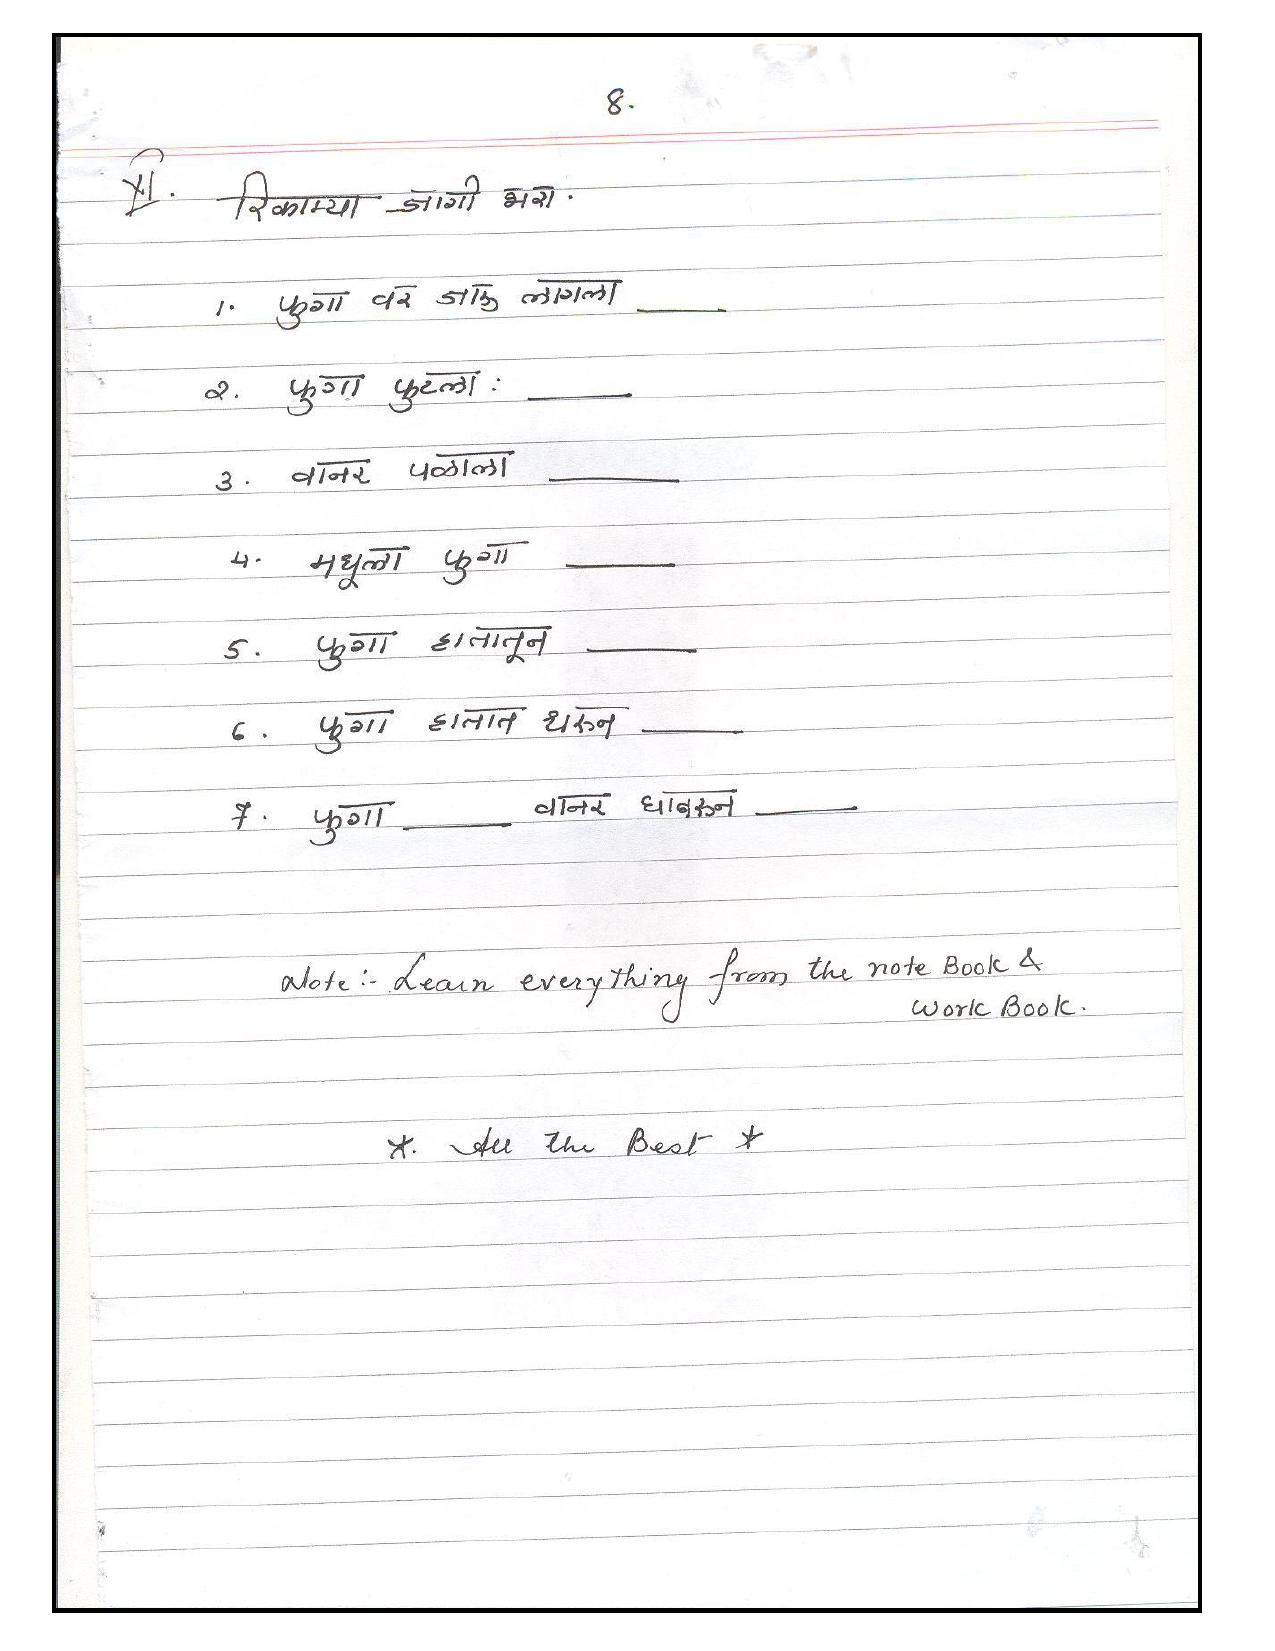 8.
XI. रिकाम्या जागी भरा.
1. फुगा वर जाऊ लागला ____
2. फुगा फुटला : ____
3. वानर पळाला ____
4. मधूला फुगा ____
5. फुगा हातातून ____
6. फुगा हातात धरून ____
7. फुगा ____ वानर घाबरून ____
Note :- Learn everything from the note Book &
Work Book.
*. All the Best *